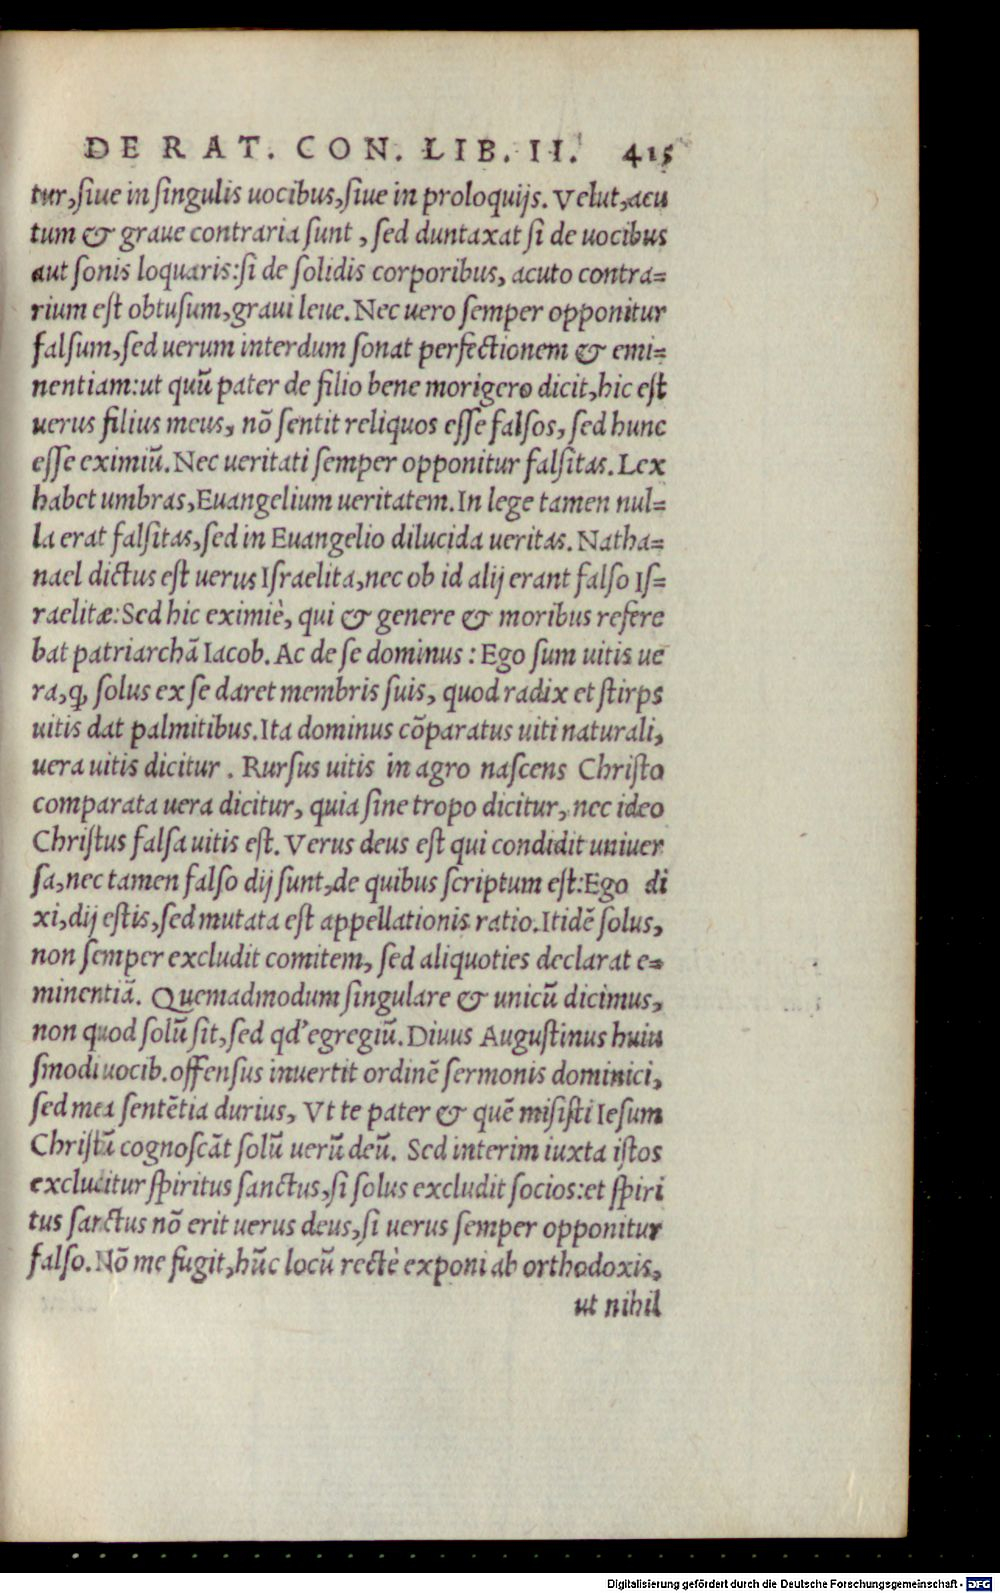 DE RAT. CON. LIB. II. 415
tur, ſiue in ſingulis uocibus, ſiue in proloquijs. Velut, acu
tum & graue contraria ſunt, ſed duntaxat ſi de uocibus
aut ſonis loquaris: ſi de ſolidis corporibus, acuto contra=
rium eſt obtuſum, graui leue. Nec uero ſemper opponitur
falſum, ſed uerum interdum ſonat perfectionem & emi=
nentiam: ut quū pater de filio bene morigero dicit, hic eſt
uerus filius meus, nō ſentit reliquos eſſe falſos, ſed hunc
eſſe eximiū. Nec ueritati ſemper opponitur falſitas. Lex
habet umbras, Euangelium ueritatem. In lege tamen nul=
la erat falſitas, ſed in Euangelio dilucida ueritas. Natha=
nael dictus eſt uerus Iſraelita, nec ob id alij erant falſo Iſ=
raelitæ: Sed hic eximiè, qui & genere & moribus refere
bat patriarchā Iacob. Ac de ſe dominus: Ego ſum uitis ue
ra, ꝙ ſolus ex ſe daret membris ſuis, quod radix et ſtirps
uitis dat palmitibus. Ita dominus cōparatus uiti naturali,
uera uitis dicitur. Rurſus uitis in agro naſcens Chriſto
comparata uera dicitur, quia ſine tropo dicitur, nec ideo
Chriſtus falſa uitis eſt. Verus deus eſt qui condidit uniuer
ſa, nec tamen falſo dij ſunt, de quibus ſcriptum eſt: Ego di
xi, dij eſtis, ſed mutata eſt appellationis ratio. Itidē ſolus,
non ſemper excludit comitem, ſed aliquoties declarat e=
minentiā. Quemadmodum ſingulare & unicū dicimus,
non quod ſolū ſit, ſed qd' egregiū. Diuus Auguſtinus huiu
ſmodi uocib. offenſus inuertit ordinē ſermonis dominici,
ſed mea ſentētia durius, Vt te pater & quē miſiſti Ieſum
Chriſtū cognoſcāt ſolū uerū deū. Sed interim iuxta iſtos
excluditur ſpiritus ſanctus, ſi ſolus excludit ſocios: et ſpiri
tus ſanctus nō erit uerus deus, ſi uerus ſemper opponitur
falſo. Nō me fugit, hūc locū rectè exponi ab orthodoxis,
ut nihil
Digitalisierung gefördert durch die Deutsche Forschungsgemeinschaft - DFG